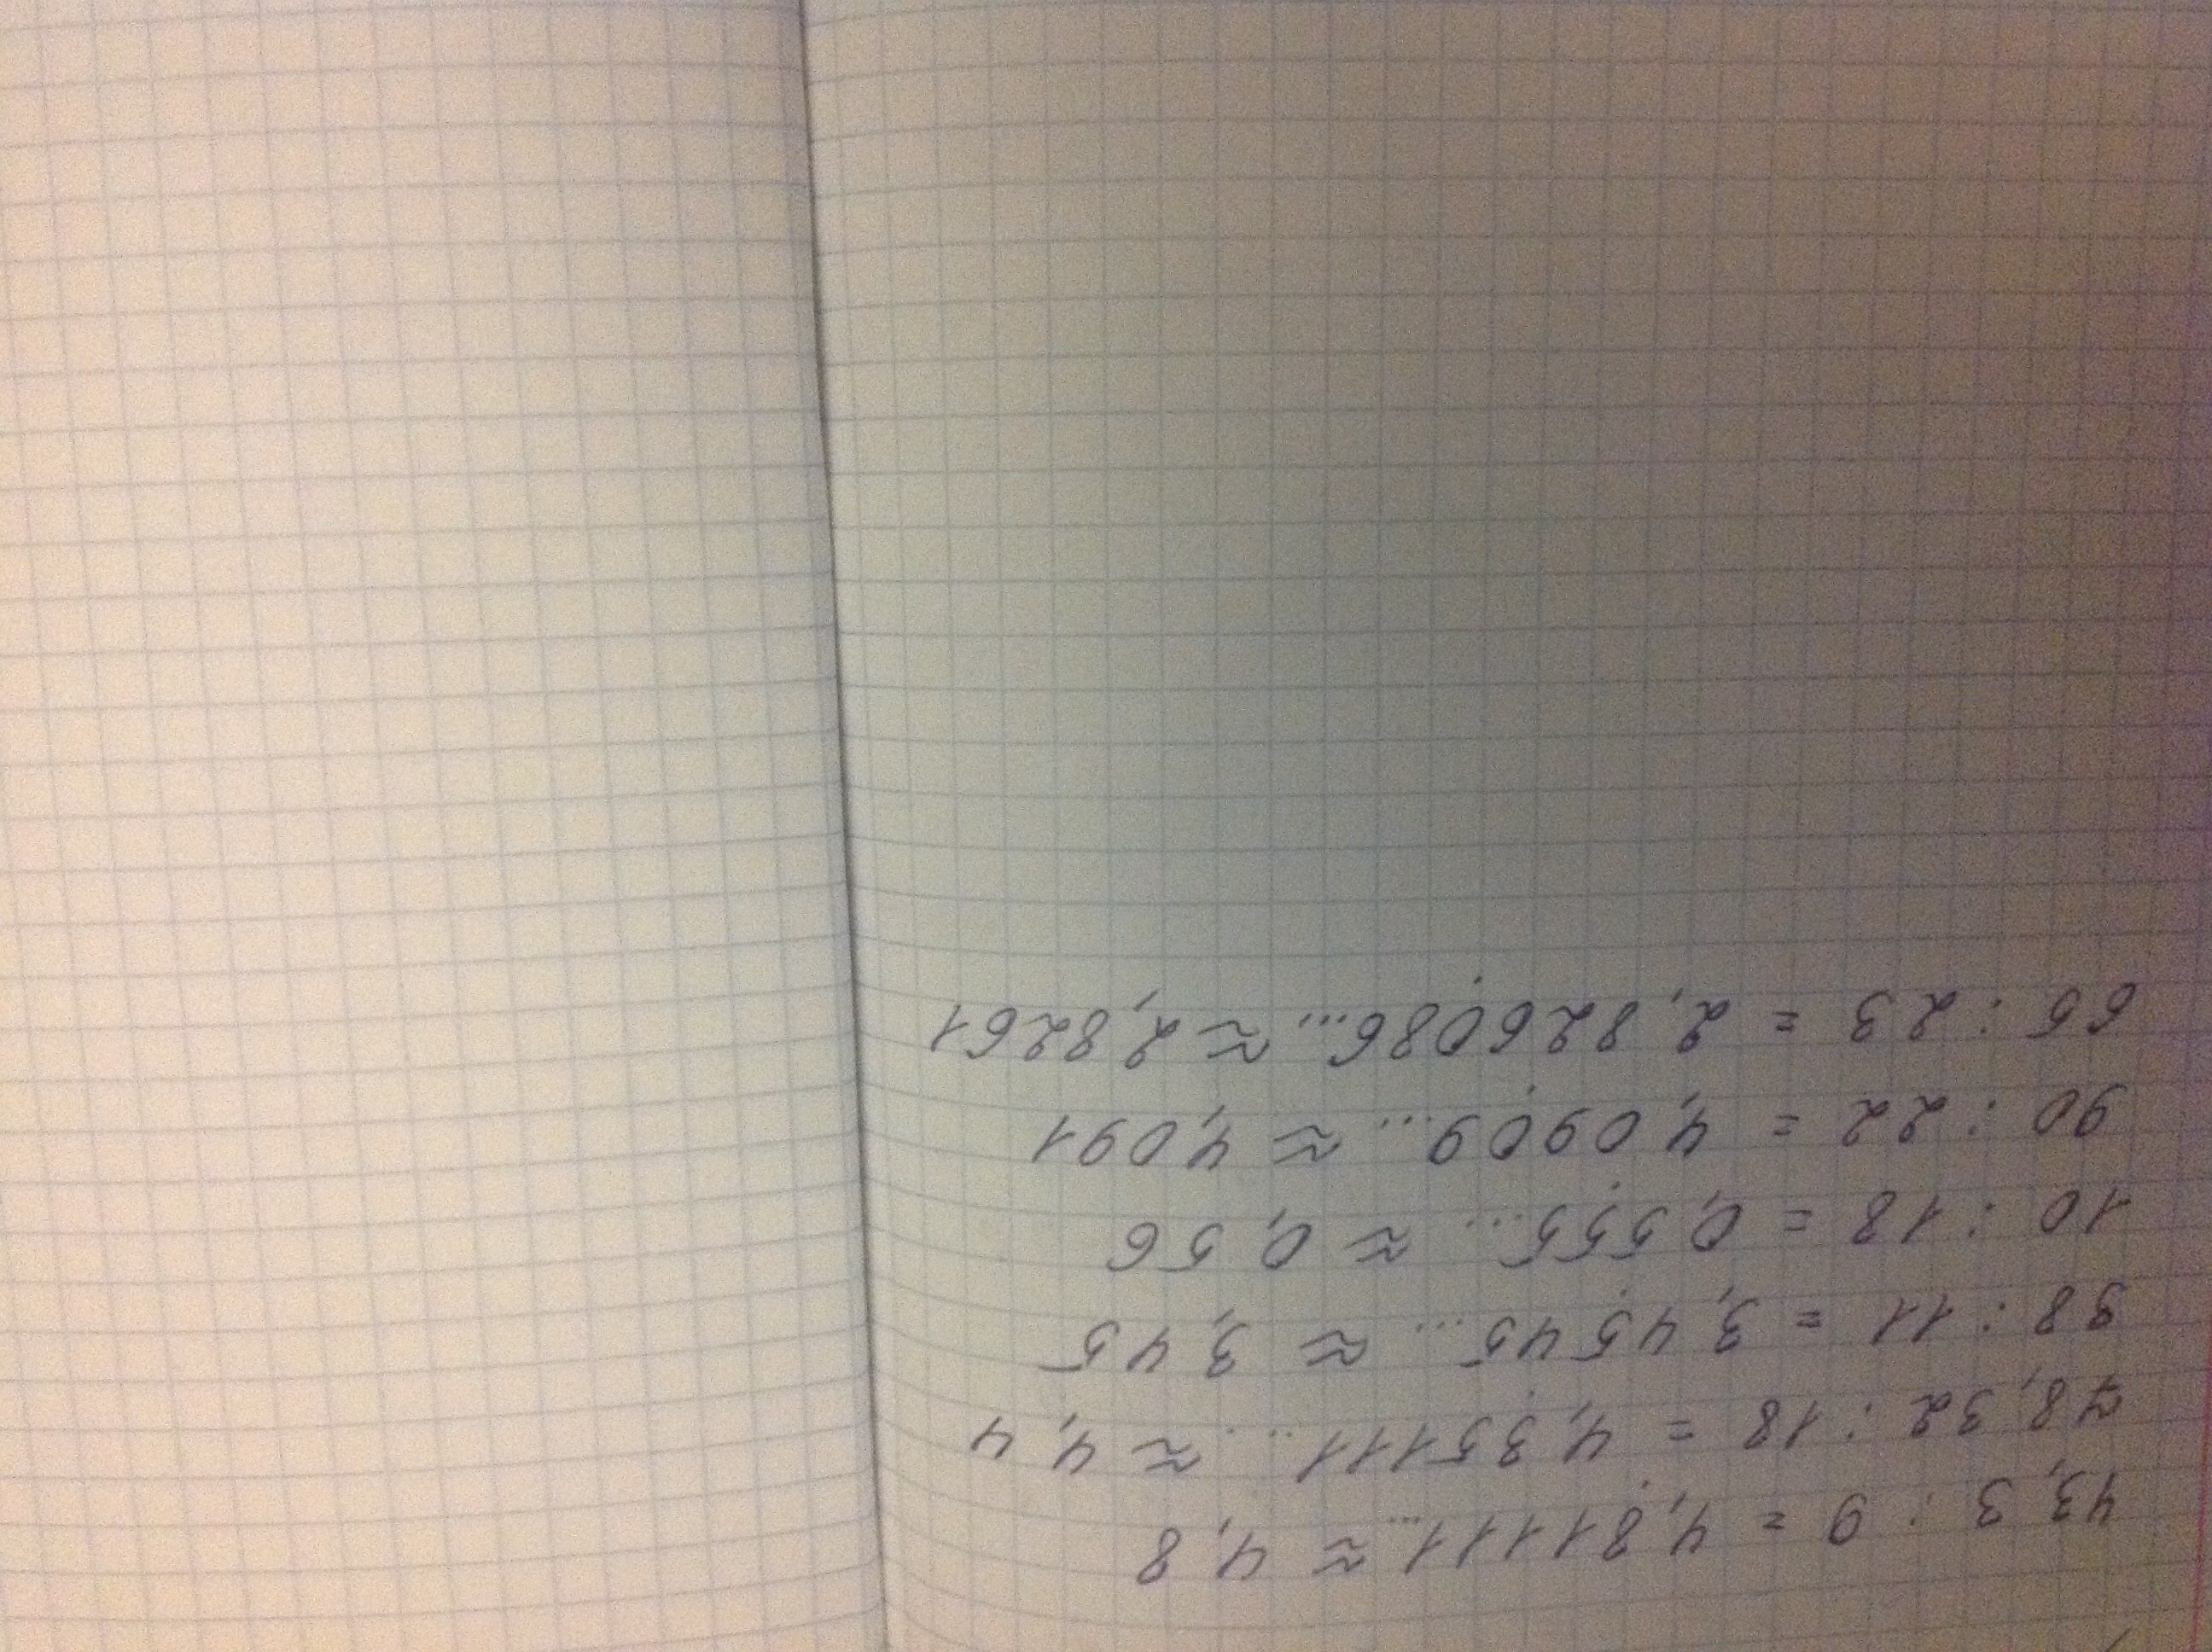 43,3 : 9 = 4,81111... ≈ 4,8
78,32 : 18 = 4,35111... ≈ 4,4
38 : 11 = 3,4545... ≈ 3,45
10 : 18 = 0,555... ≈ 0,56
90 : 22 = 4,0909... ≈ 4,091
65 : 23 = 2,826086... ≈ 2,8261